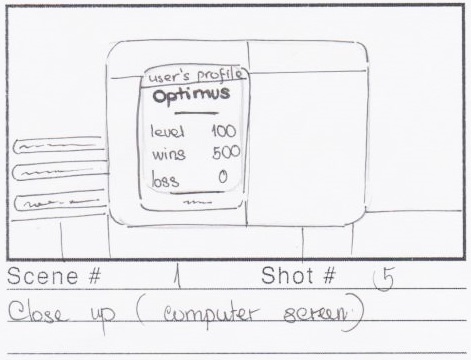 user's profile
Optimus
level 100
wins 500
loss 0
Scene # 1 Shot # 5
Close up (computer screen)